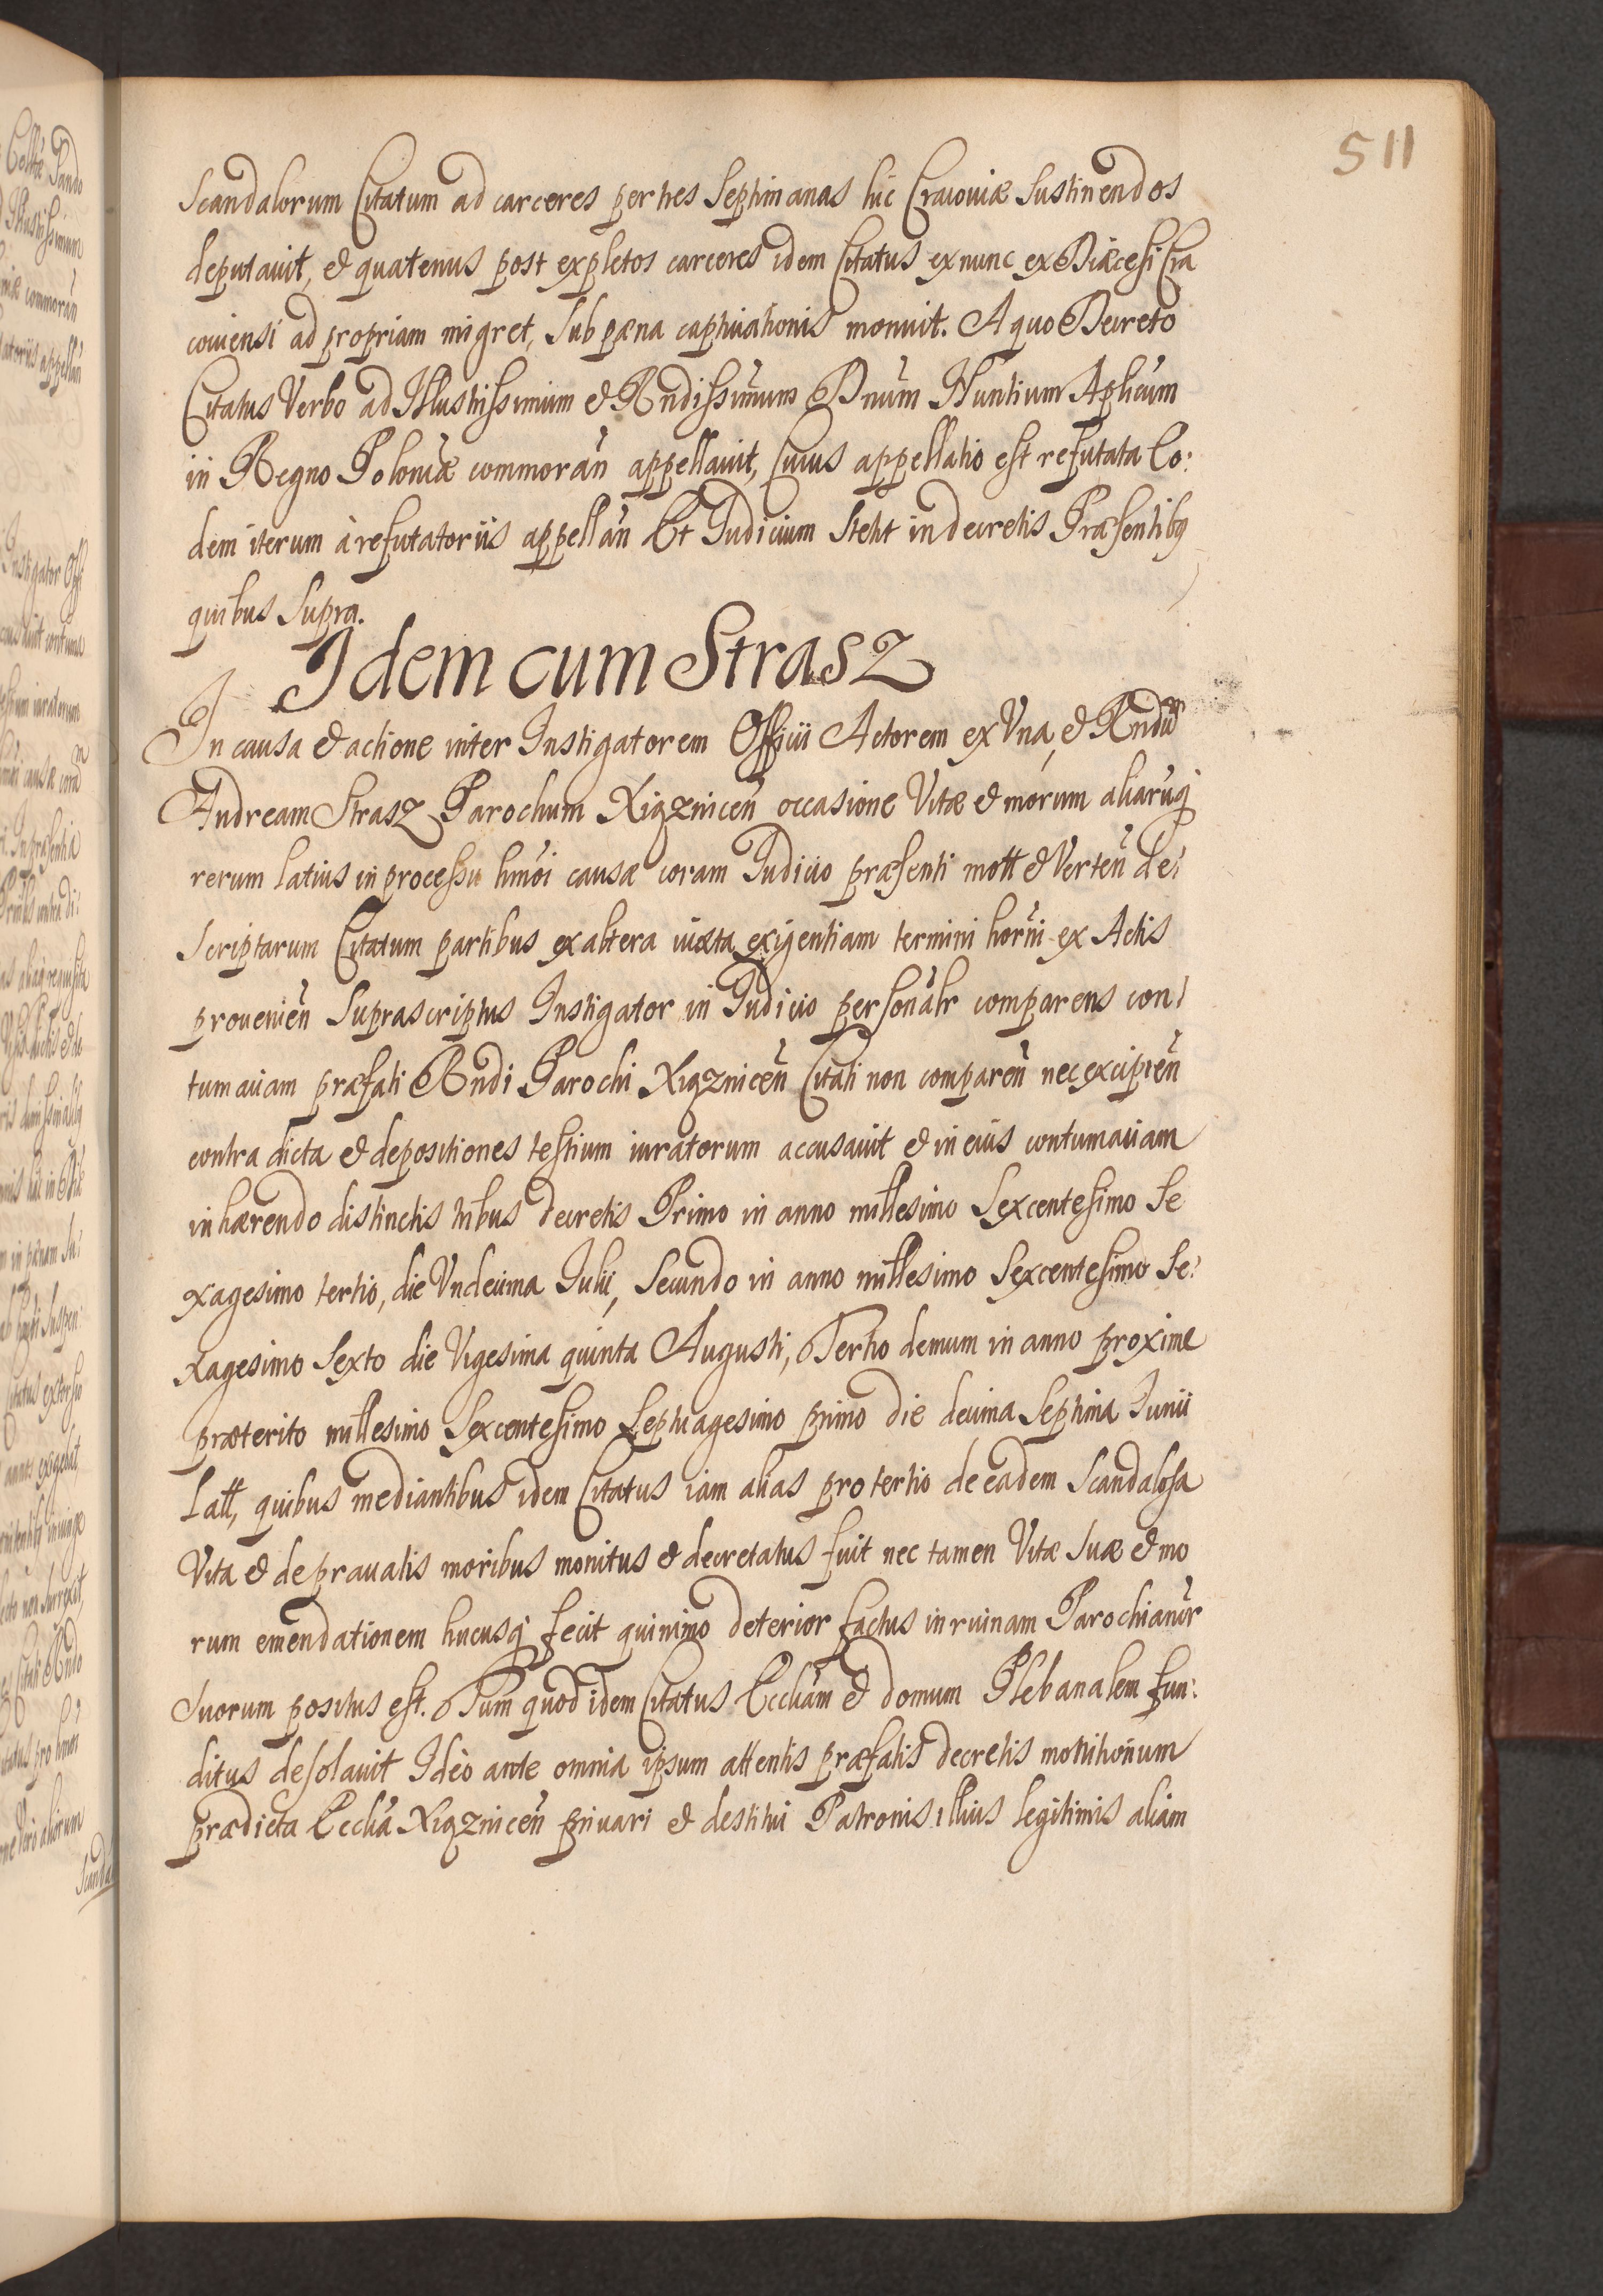 511
Scandalorum Citatum ad carceres per tres Septimanas hic Cracouiæ Sustinendos
deputauit, et quatenus post expletos carceres idem Citatus ex nunc ex Diæcesi Cra
couiensi ad propriam migret, Sub pæna captiuationis monuit. A quo Decreto
Citatus Verbo ad Illustrissimum et Rndissimum Dnum Nuntium Aplicum
in Regno Poloniæ commorań appellauit, Cuius appellatio est refutata Eo:
dem iterum à refutatoriis appellań Et Iudicium Stetit in decretis Præsentibq
quibus Supra.
Idem cum Strasz
In causa et actione inter Instigatorem Officii Actorem ex Vna, et Rndum
Andream Strasz Parochum Xiązniceń occasione Vitæ et morum aliaruq
rerum latius in processu hmoi causæ coram Iudicio præsenti mott et Verteń de:
Scriptarum Citatum partibus ex altera iuxta exigentiam termini horni ex Actis
prouenień Suprascriptus Instigator in Iudicio personalr comparens con:
tumaciam præfati Rndi Parochi Xiązniceń Citati non compareń nec excipień
contra dicta et depositiones testium iuratorum accusauit et in eius contumaciam
inhærendo distinctis tribus decretis Primo in anno millesimo Sexcentesimo Se
xagesimo tertio, die Vndecima Iulii, Secundo in anno millesimo Sexcentesimo Se:
xagesimo Sexto die Vigesima quinta Augusti, Tertio demum in anno proxime
præterito millesimo Sexcentesimo Septuagesimo primo die decima Septima Iunii
Latt, quibus mediantibus idem Citatus iam alias pro tertio de eadem Scandalosa
Vita et deprauatis moribus monitus et decretatus fuit nec tamen Vitæ Suæ et mo
rum emendationem hucusq fecit quinimo deterior factus in ruinam Parochianor
Suorum positus est. Tum quod idem Citatus Eccliam et domum Plebanalem fun:
ditus desolauit Ideo ante omnia ipsum attentis præfatis decretis monitionum
prædicta Ecclia Xiązniceń priuari et destitui Patronis illius legitimis aliam